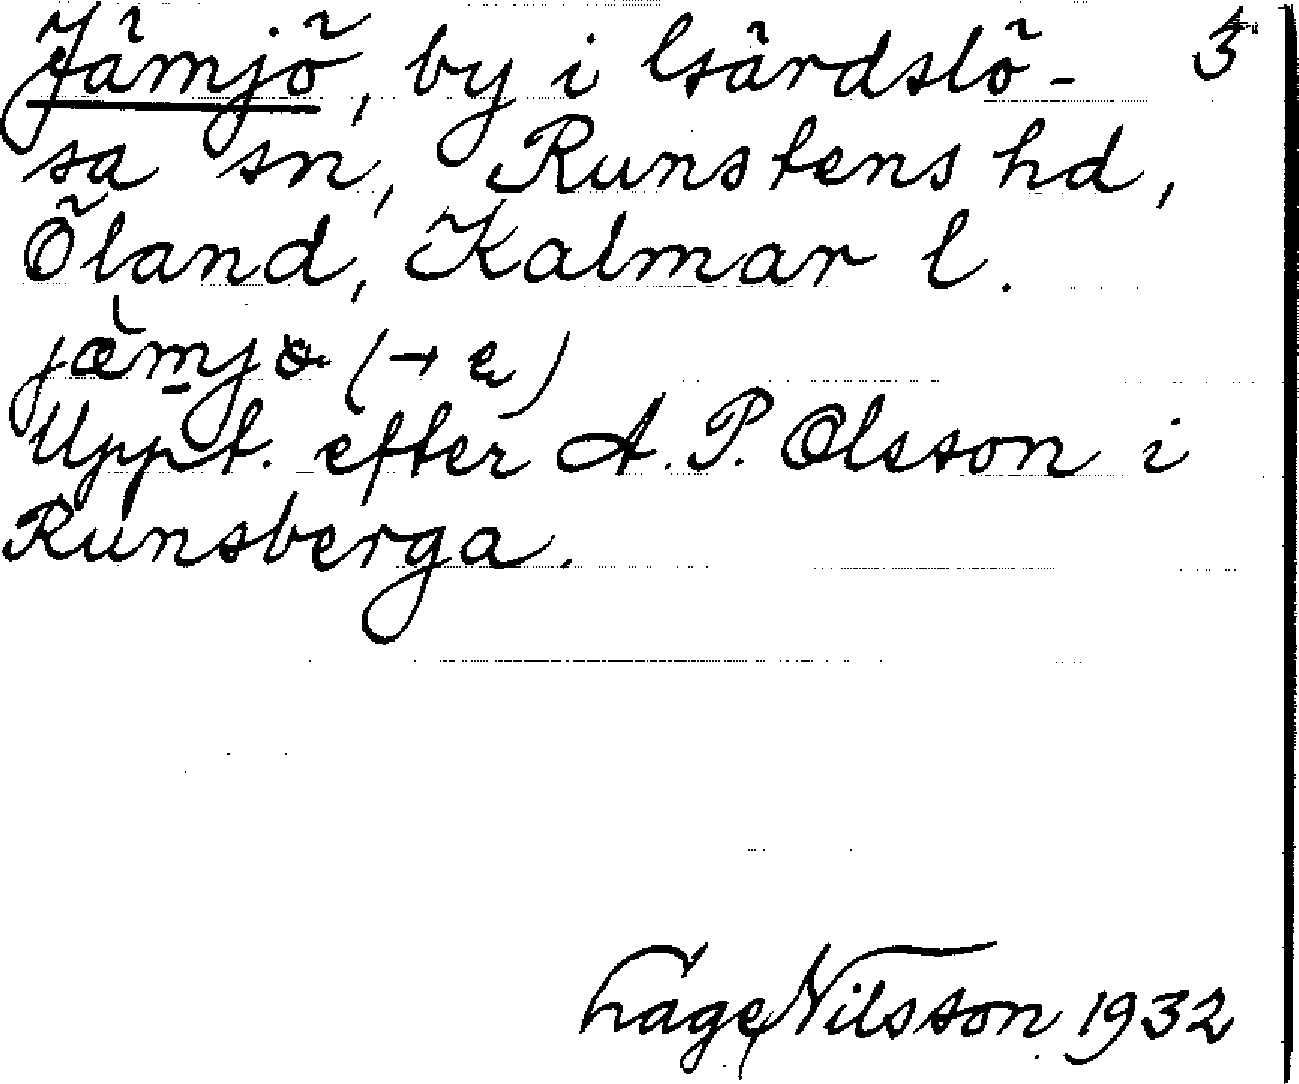 Jämjö, by i Gärdslö- 5
sa sn, Runstens hd,
Öland, Kalmar l.
jæmjɵ (→ e)
Uppt. efter A. P. Olsson i
Runsberga.
Lage Nilsson 1932